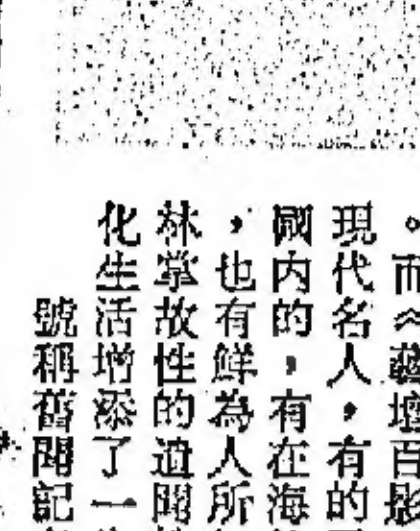 。而《藝壇百影
現代名人，有的
國内的，有在海
，也有鮮為人所
林掌故性的遺聞
化生活增添了一
號稱舊聞記